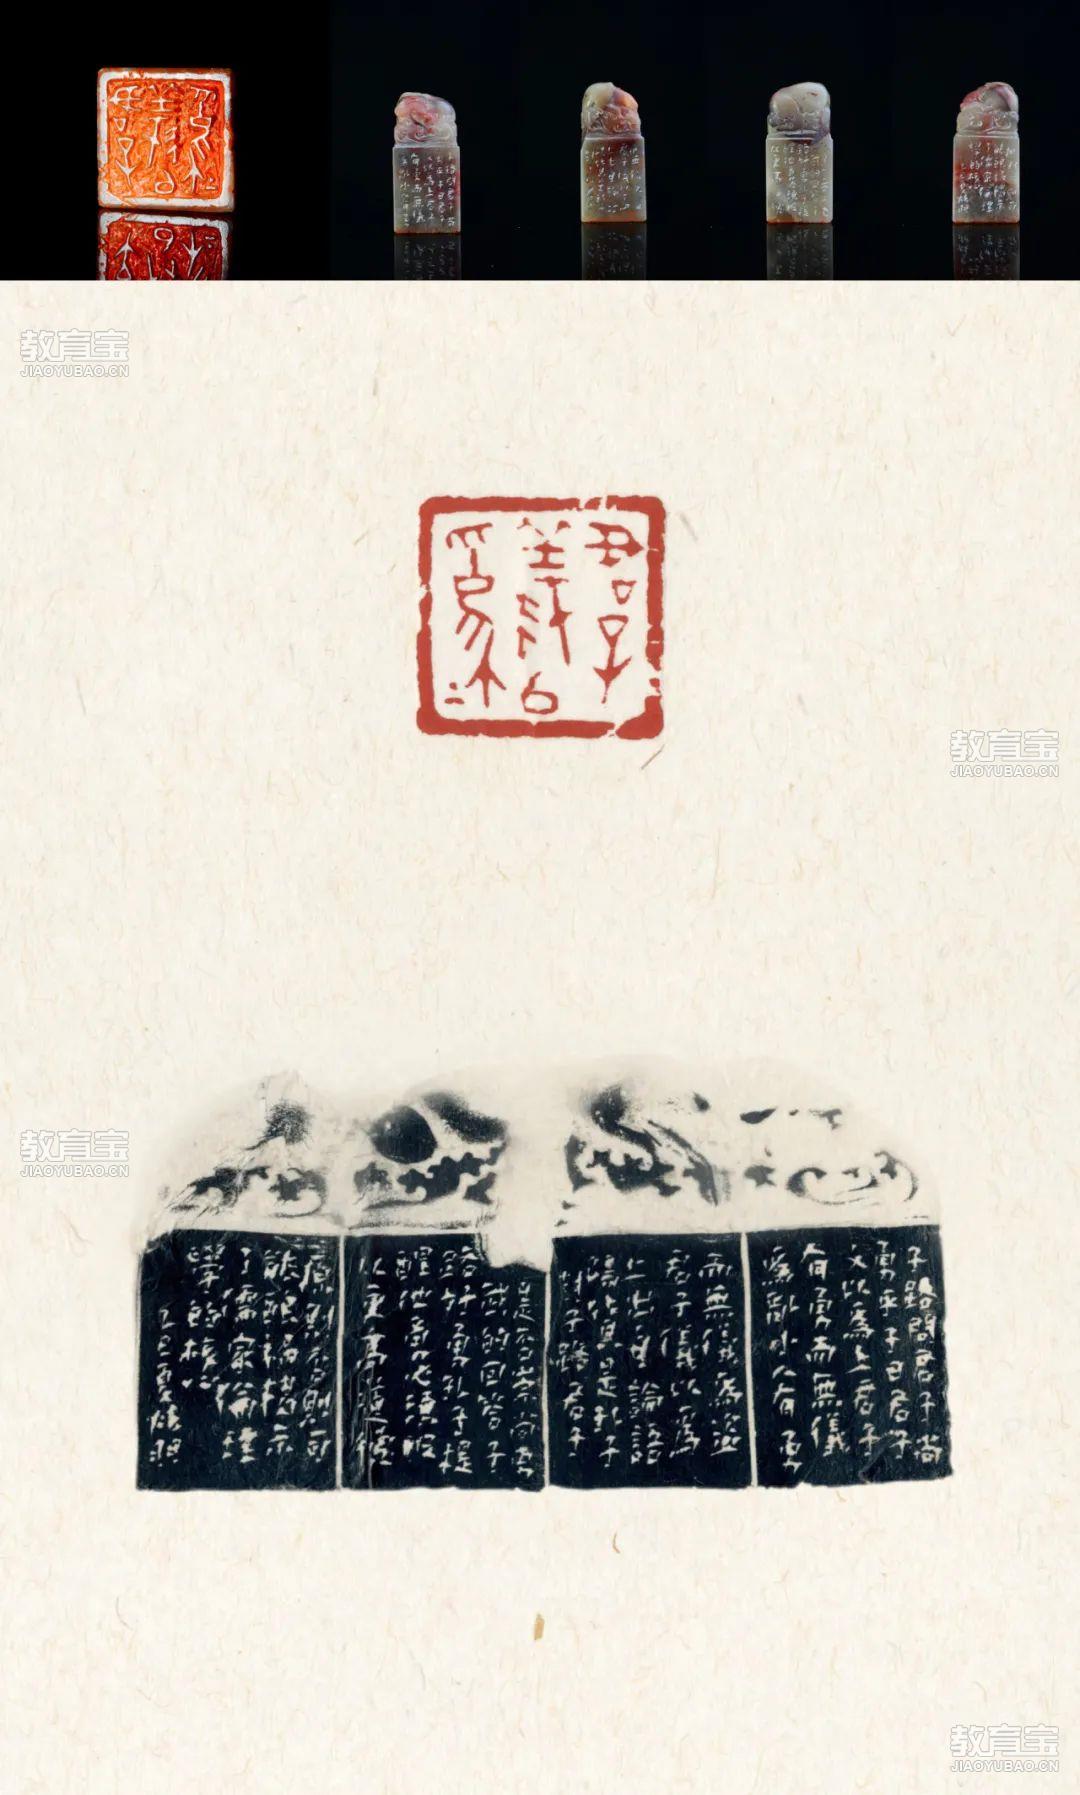 教育宝
JIAOYUBAO.CN
君子
義以
為上
教育宝
JIAOYUBAO.CN
教育宝
JIAOYUBAO.CN
子路問君子尚
勇乎子曰君子
义以為上君子
有勇而無儀
為亂小人有勇
而無儀為盜
君子儀以為
上出自論語
陽貨是孔子
對子路君子
是否崇尚勇
武的回答子
路好勇孔子提
醒他勇必須服
以更高道德
原則否則可
能釀禍揭示
了儒家倫理
學的核心
乙巳夏
教育宝
JIAOYUBAO.CN